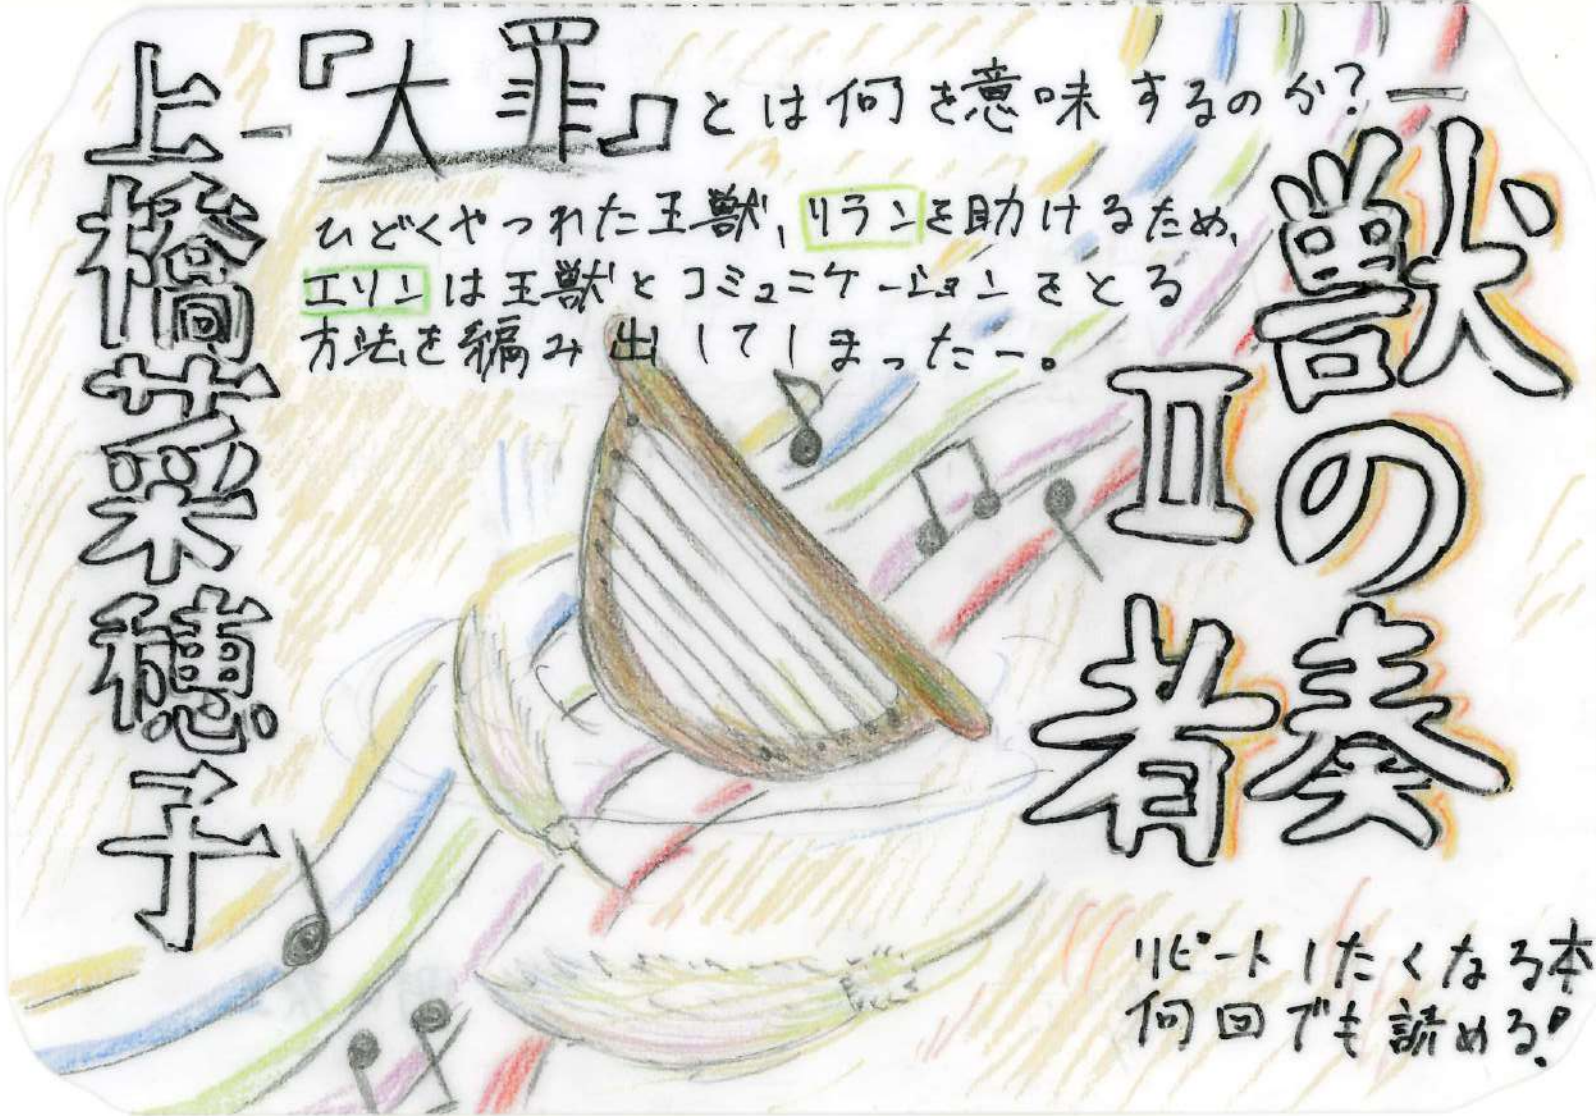 －『大罪』とは何を意味するのか?－
ひどくやつれた王獣、リランを助けるため、
エリンは王獣とコミュニケーションをとる
方法を編み出してしまったー。
獣の奏者
Ⅱ
上橋菜穂子
リピートしたくなる本
何回でも読める!